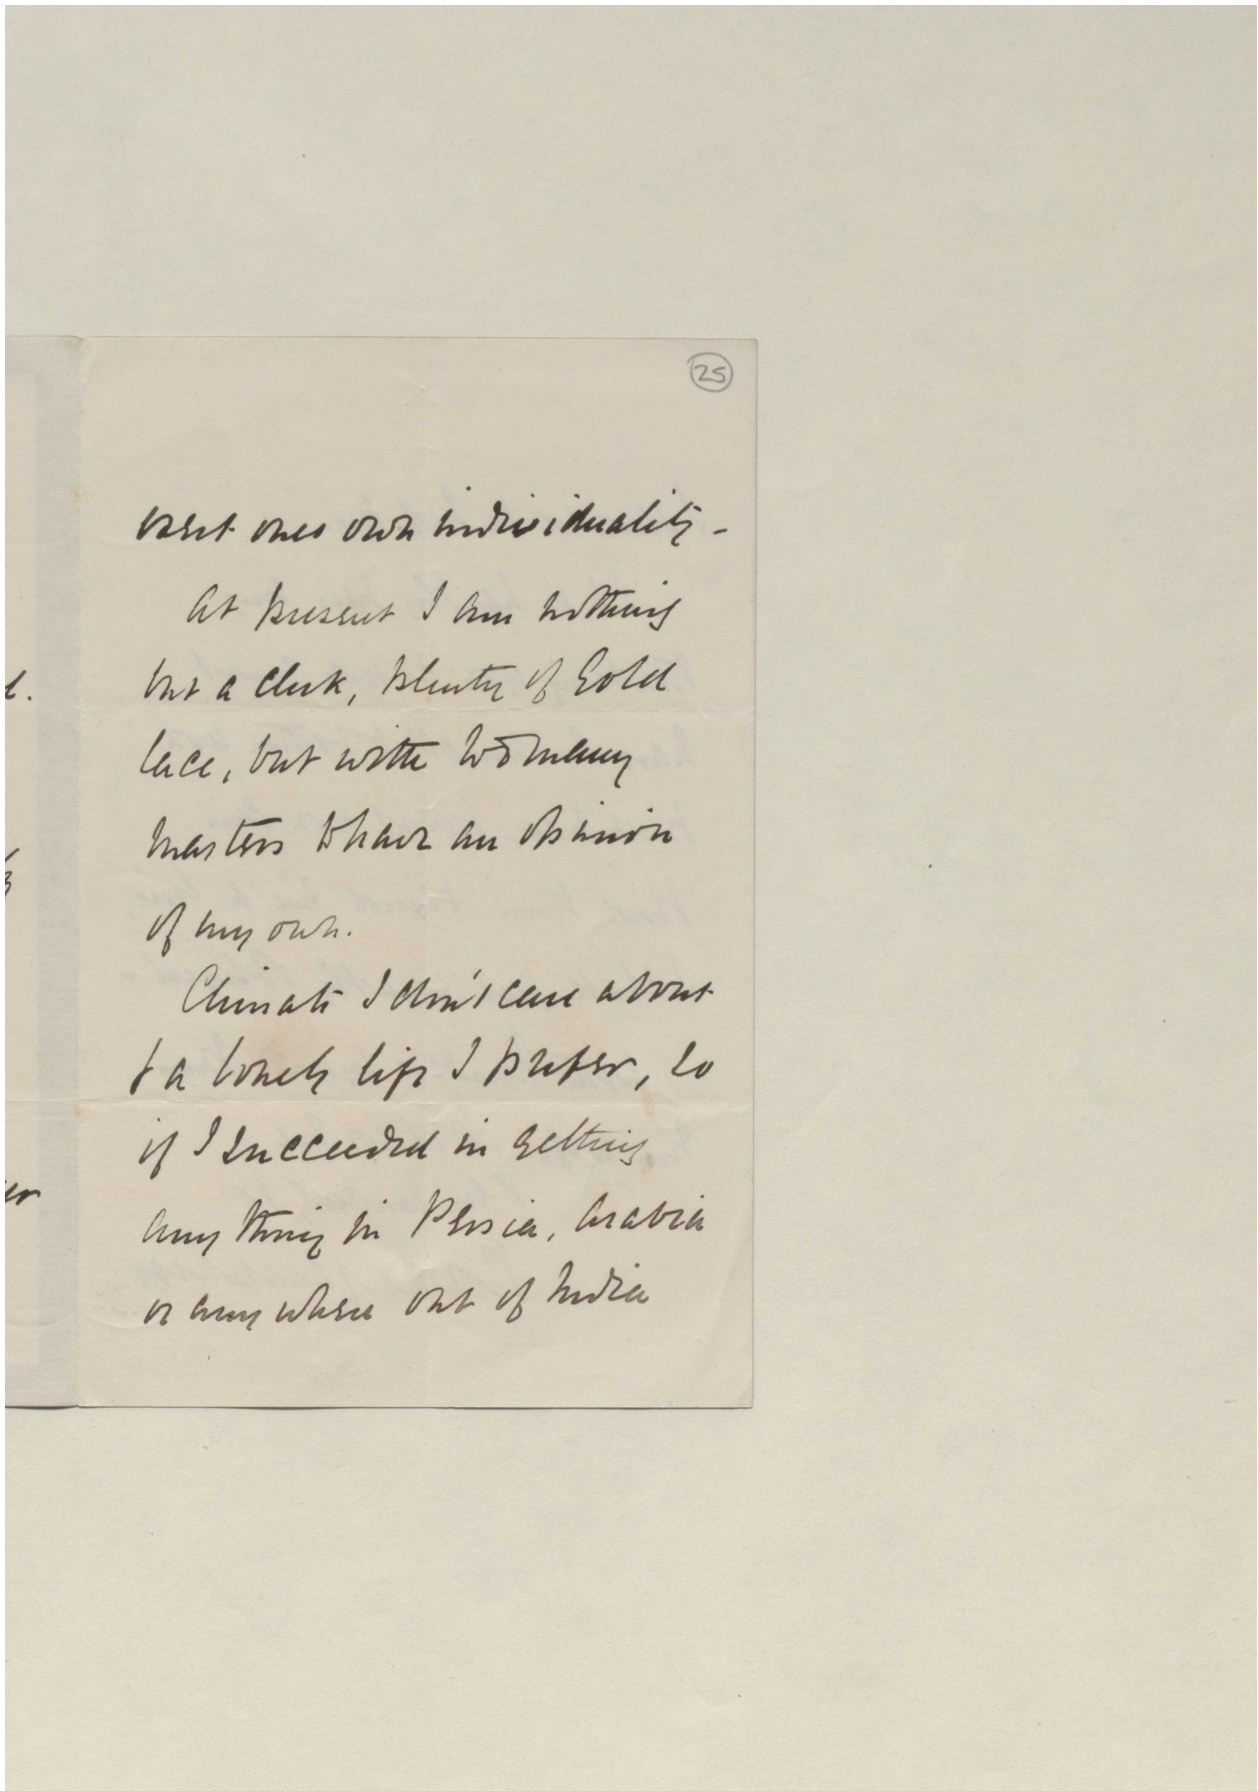 25
assert ones own individuality -
At present I am nothing
but a clerk, plenty of Gold
lace, but with too many
masters to have an opinion
of my own.
Climate I don't care about
& a lonely life I prefer, so
if I succeeded in getting
any thing in Persia, Arabia
or any where out of India